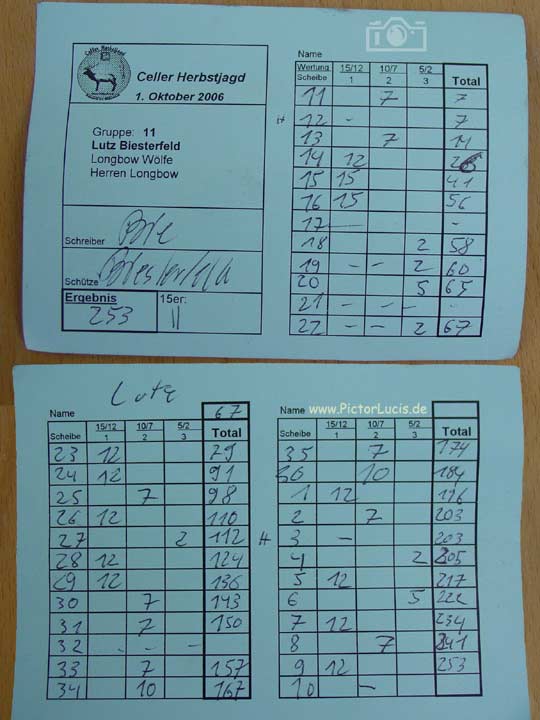 Celler Herbstjagd
Celler Herbstjagd
1. Oktober 2006
Gruppe: 11
Lutz Biesterfeld
Longbow Wölfe
Herren Longbow
Schreiber
Schütze
Ergebnis 15er:
253 II
Name
Wertung 15/12 10/7 5/2
Scheibe 1 2 3 Total
11 7 7
12 - 7
13 7 14
14 12 26
15 15 41
16 15 56
17 - -
18 2 58
19 - - 2 60
20 5 65
21 - - - -
22 - - 2 67
Lutz
Name 67
15/12 10/7 5/2
Scheibe 1 2 3 Total
23 12 79
24 12 91
25 7 98
26 12 110
27 2 112
28 12 124
29 12 136
30 7 143
31 7 150
32 - - -
33 7 157
34 10 167
Name www.PictorLucis.de
15/12 10/7 5/2
Scheibe 1 2 3 Total
35 7 174
36 10 184
1 12 196
2 7 203
3 - 203
4 2 205
5 12 217
6 5 222
7 12 234
8 7 241
9 12 253
10 -